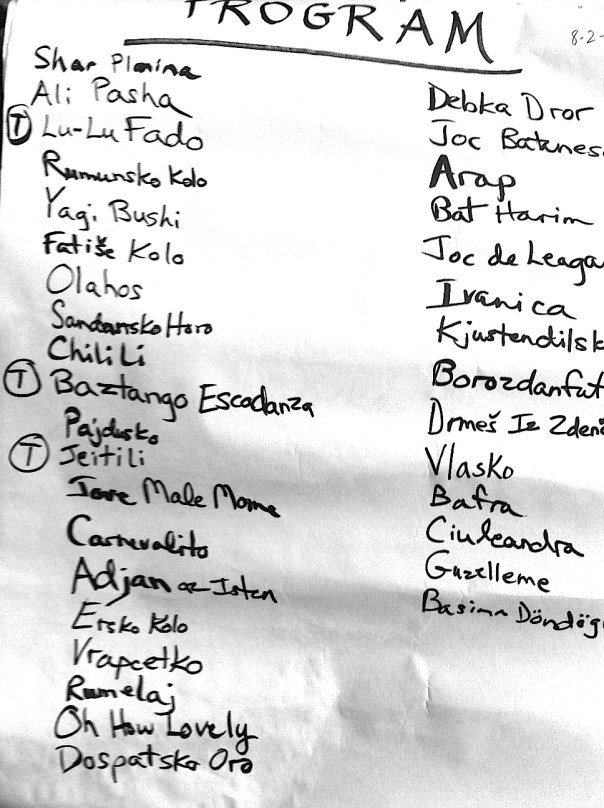 PROGRAM
8-2-
Shar Planina
Ali Pasha
T Lu-Lu Fado
Rumunsko Kolo
Yagi Bushi
Fatiše Kolo
Olahos
Sandansko Horo
Chilili
T Baztango Escodanza
Pajdusko
T Jeitili
Jove Male Mome
Carnevalito
Adjan az Isten
Ersko Kolo
Vrapcetko
Rumelaj
Oh How Lovely
Dospatsko Oro
Debka Dror
Joc Batrines
Arap
Bat Harim
Joc de Leaga
Ivanica
Kjustendilsk
Borozdanfut
Drmeš Iz Zden
Vlasko
Bafra
Ciuleandra
Guzelleme
Basima Döndög